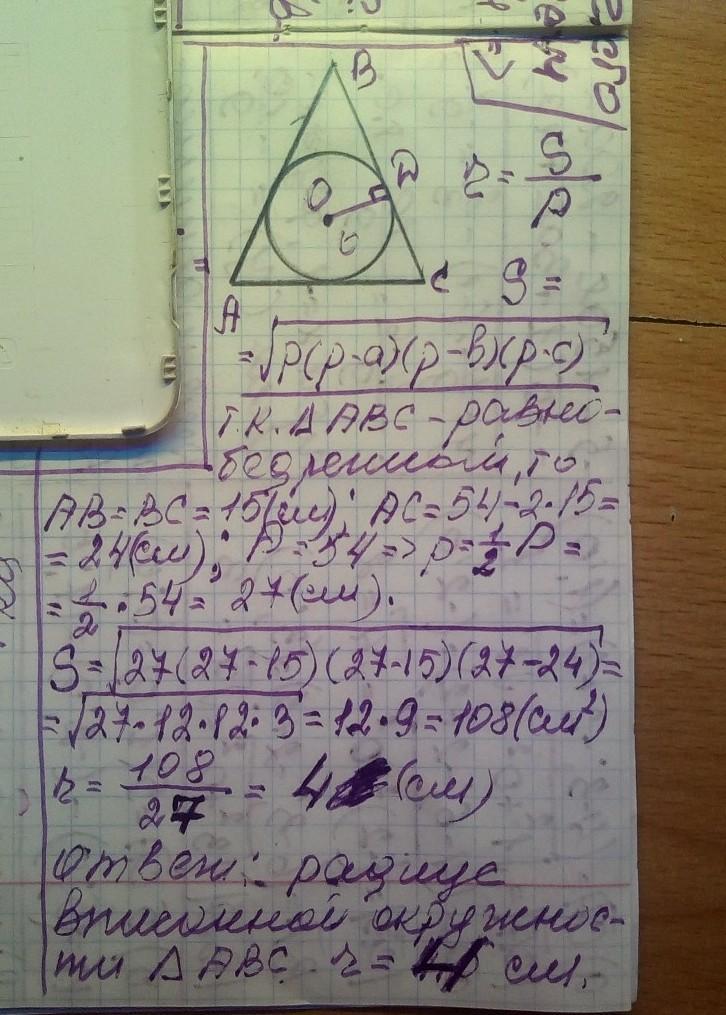 B
D
O
A
C
r = S/p
S =
= √p(p-a)(p-b)(p-c)
т.к. ΔABC - равно-
бедренный, то
AB = BC = 15(см); AC = 54-2·15=
= 24(см); P = 54 => p = 1/2 P =
= 1/2 · 54 = 27(см).
S = √27(27-15)(27-15)(27-24) =
= √27·12·12·3 = 12·9 = 108(см²)
r = 108/27 = 4 (см)
Ответ: радиус
вписанной окружнос-
ти ΔABC r = 4 см.